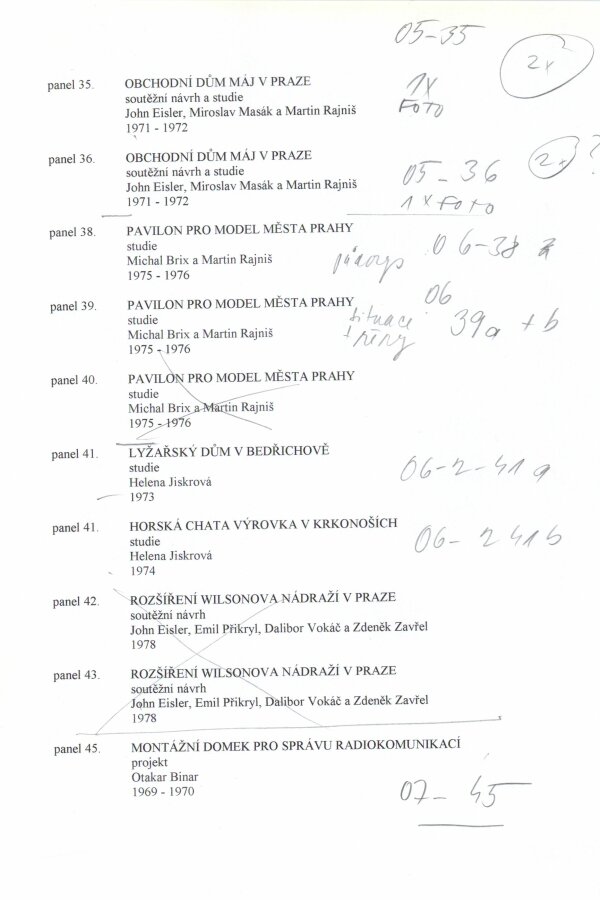 05-35
2x
panel 35. OBCHODNÍ DŮM MÁJ V PRAZE
soutěžní návrh a studie
John Eisler, Miroslav Masák a Martin Rajniš
1971 - 1972
1x
FOTO
panel 36. OBCHODNÍ DŮM MÁJ V PRAZE
soutěžní návrh a studie
John Eisler, Miroslav Masák a Martin Rajniš
1971 - 1972
05-36
2x ?
1x FOTO
panel 38. PAVILON PRO MODEL MĚSTA PRAHY
studie
Michal Brix a Martin Rajniš
1975 - 1976
půdorys 06-38
panel 39. PAVILON PRO MODEL MĚSTA PRAHY
studie
Michal Brix a Martin Rajniš
1975 - 1976
situace
06
39a + b
panel 40. PAVILON PRO MODEL MĚSTA PRAHY
studie
Michal Brix a Martin Rajniš
1975 - 1976
panel 41. LYŽAŘSKÝ DŮM V BEDŘICHOVĚ
studie
Helena Jiskrová
1973
06-2-41a
panel 41. HORSKÁ CHATA VÝROVKA V KRKONOŠÍCH
studie
Helena Jiskrová
1974
06-2 41b
panel 42. ROZŠÍŘENÍ WILSONOVA NÁDRAŽÍ V PRAZE
soutěžní návrh
John Eisler, Emil Přikryl, Dalibor Vokáč a Zdeněk Zavřel
1978
panel 43. ROZŠÍŘENÍ WILSONOVA NÁDRAŽÍ V PRAZE
soutěžní návrh
John Eisler, Emil Přikryl, Dalibor Vokáč a Zdeněk Zavřel
1978
panel 45. MONTÁŽNÍ DOMEK PRO SPRÁVU RADIOKOMUNIKACÍ
projekt
Otakar Binar
1969 - 1970
07-45